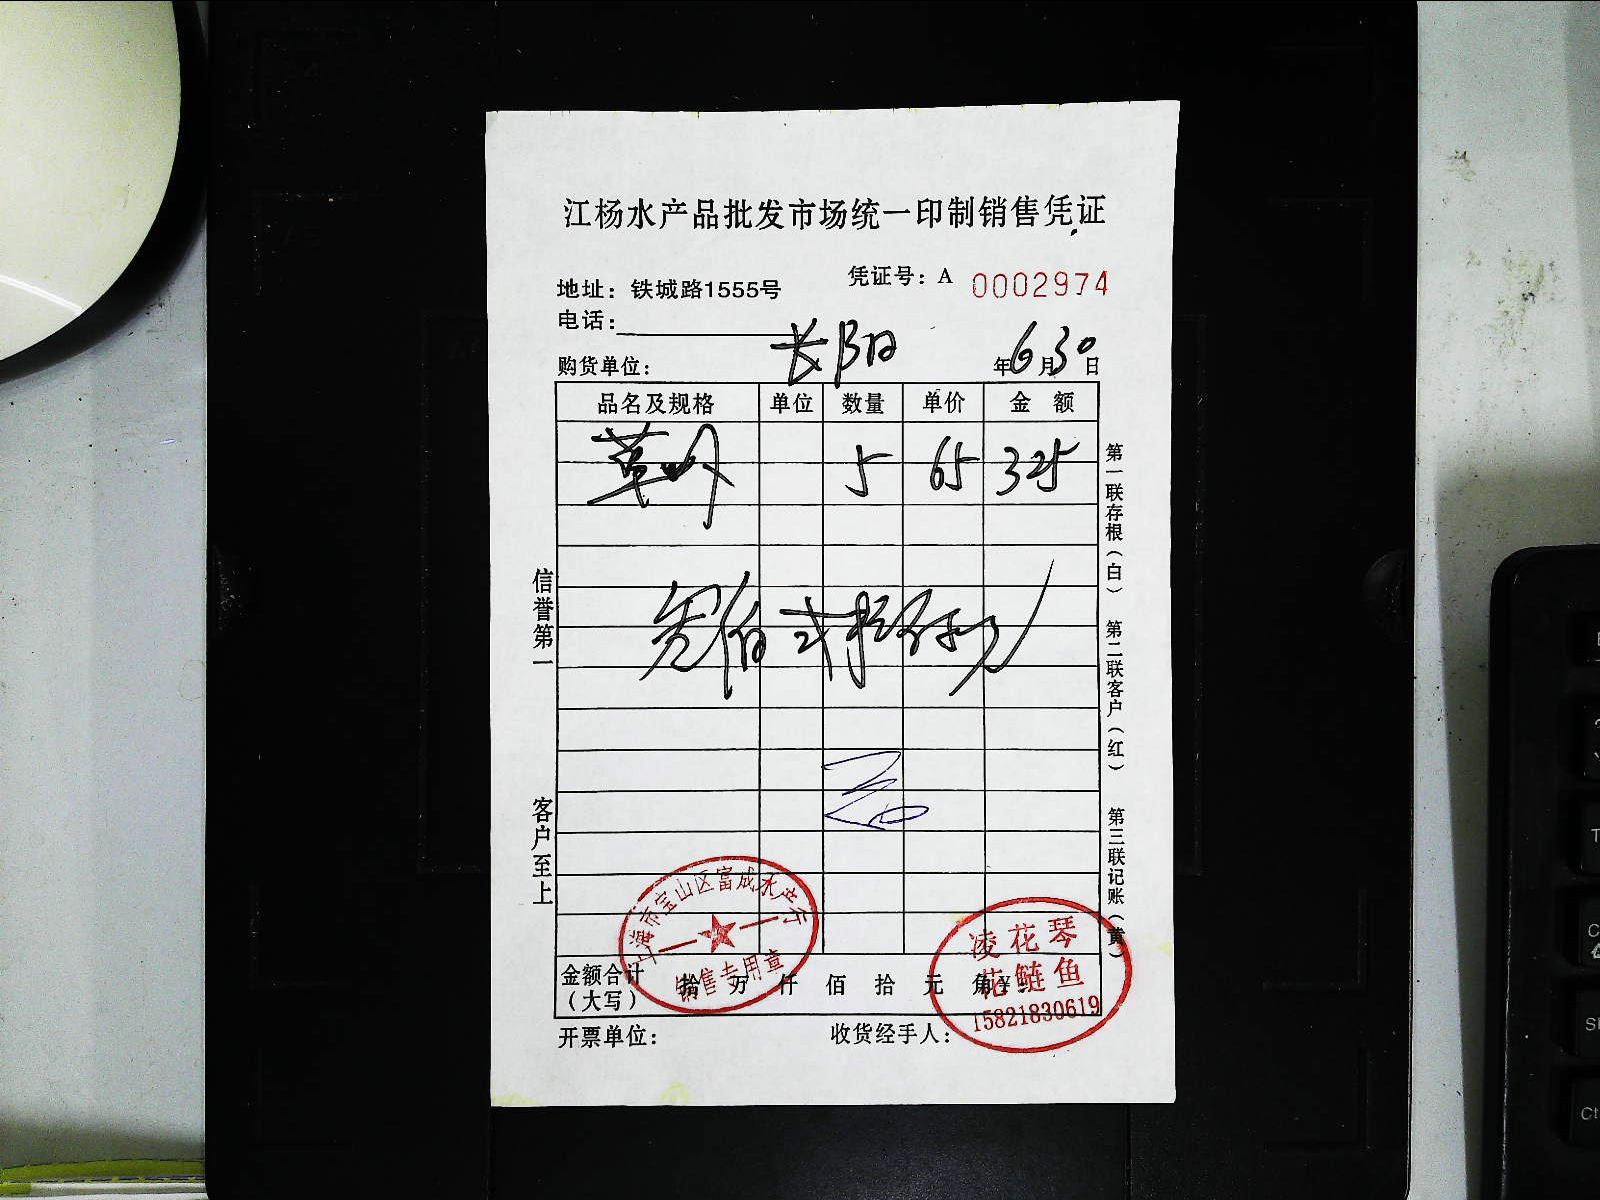 江杨水产品批发市场统一印制销售凭证
凭证号：A 0002974
地址：铁城路1555号
电话：
购货单位： 长阳 年6月30日
品名及规格 单位 数量 单价 金 额
草 5 65 325
信誉第一
客户至上
第一联存根（白）
第二联客户（红）
第三联记账（黄）
上海市宝山区富成水产行
销售专用章
凌花琴
花鲢鱼
15821830619
金额合计（大写） 拾 万 仟 佰 拾 元 角
开票单位：
收货经手人：